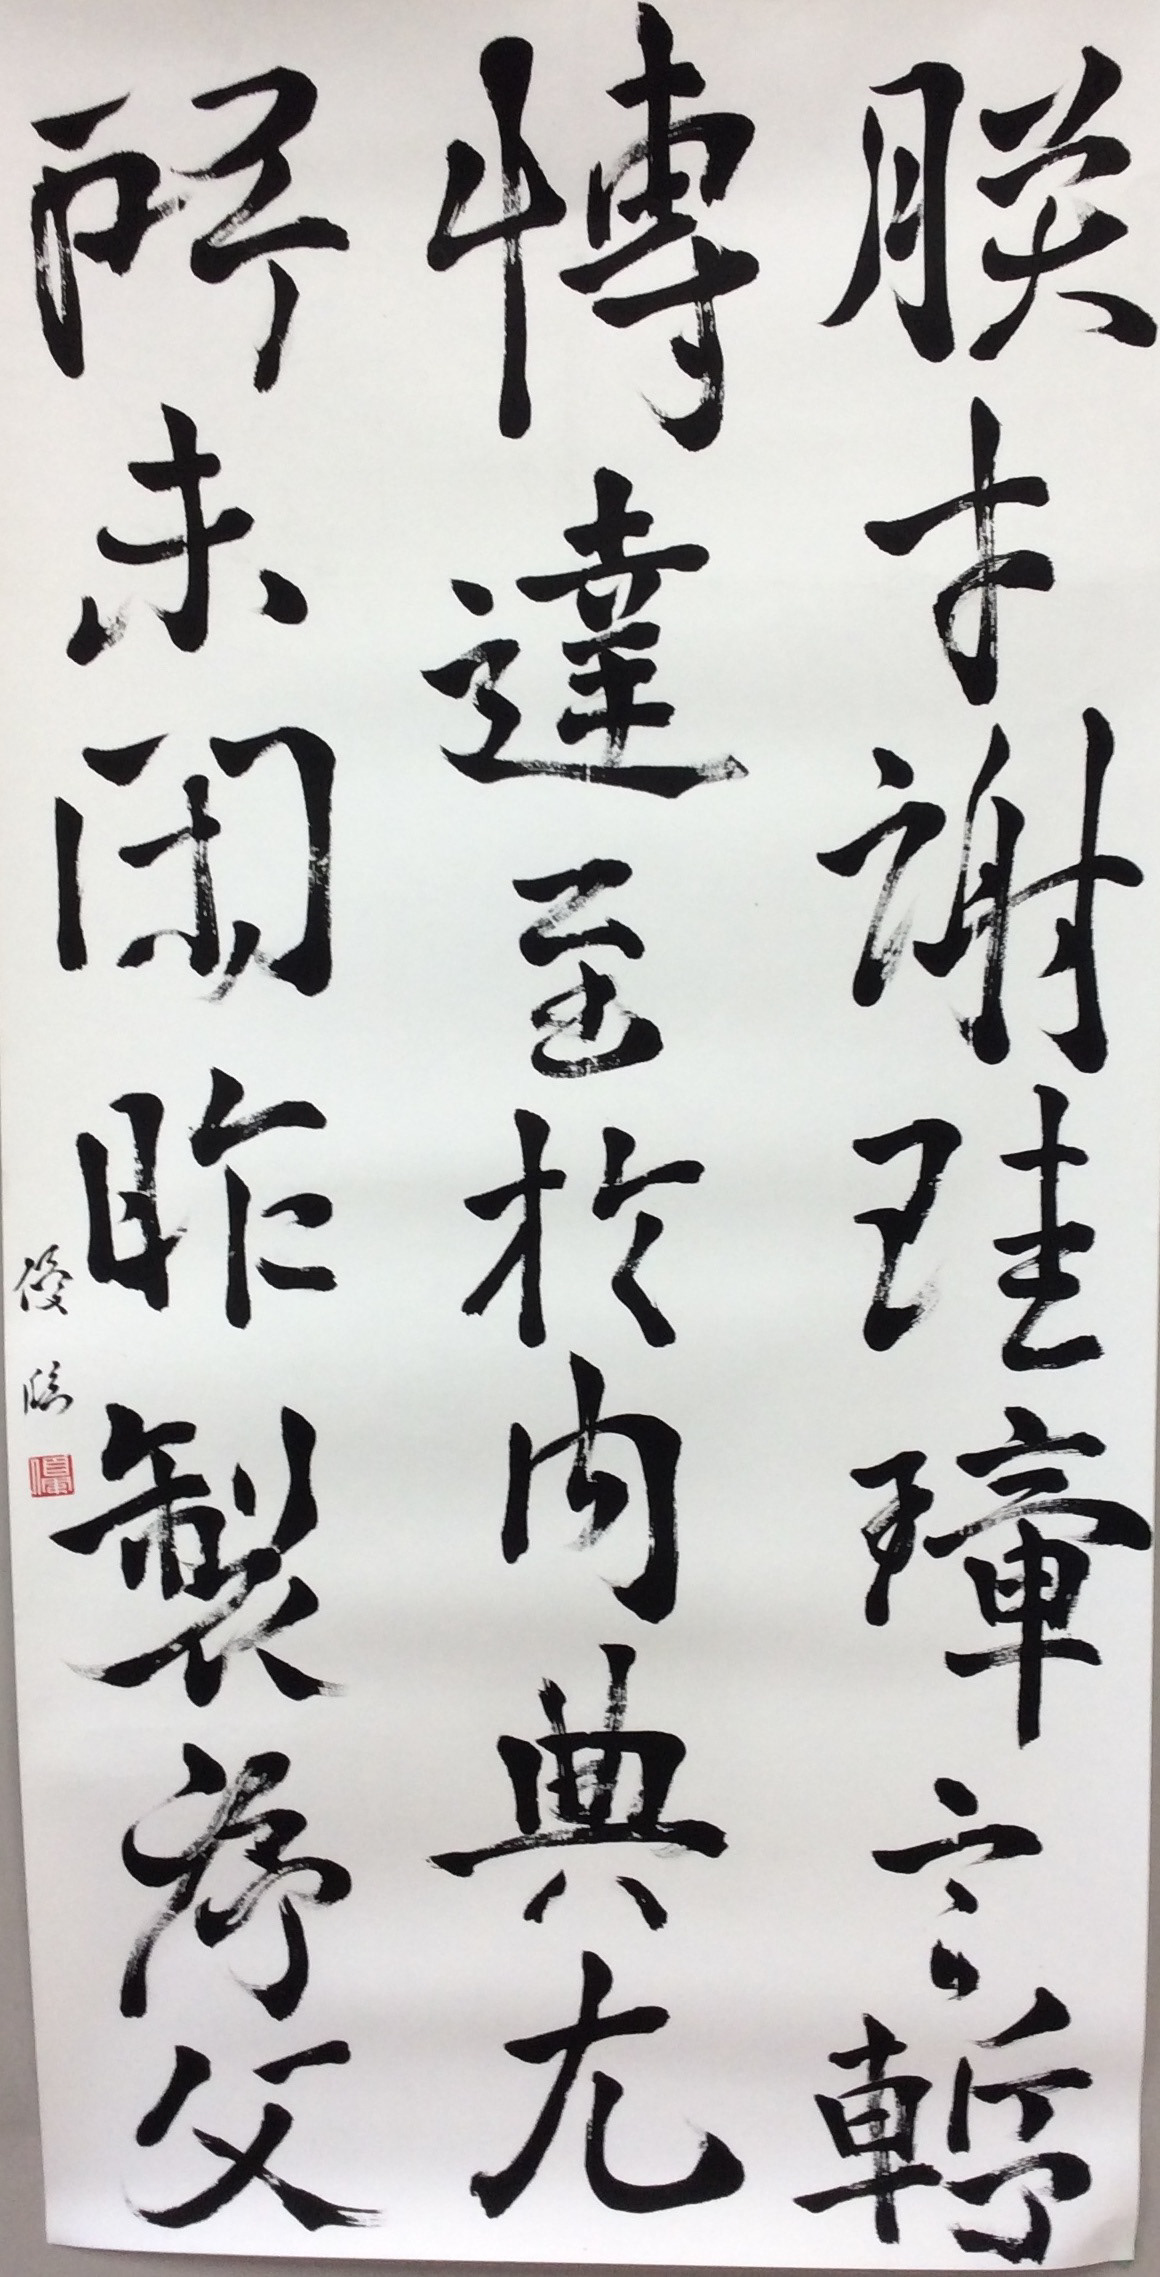 朕才謝珪璋言慙
博達至於内典尤
所未閑昨製序文
臨